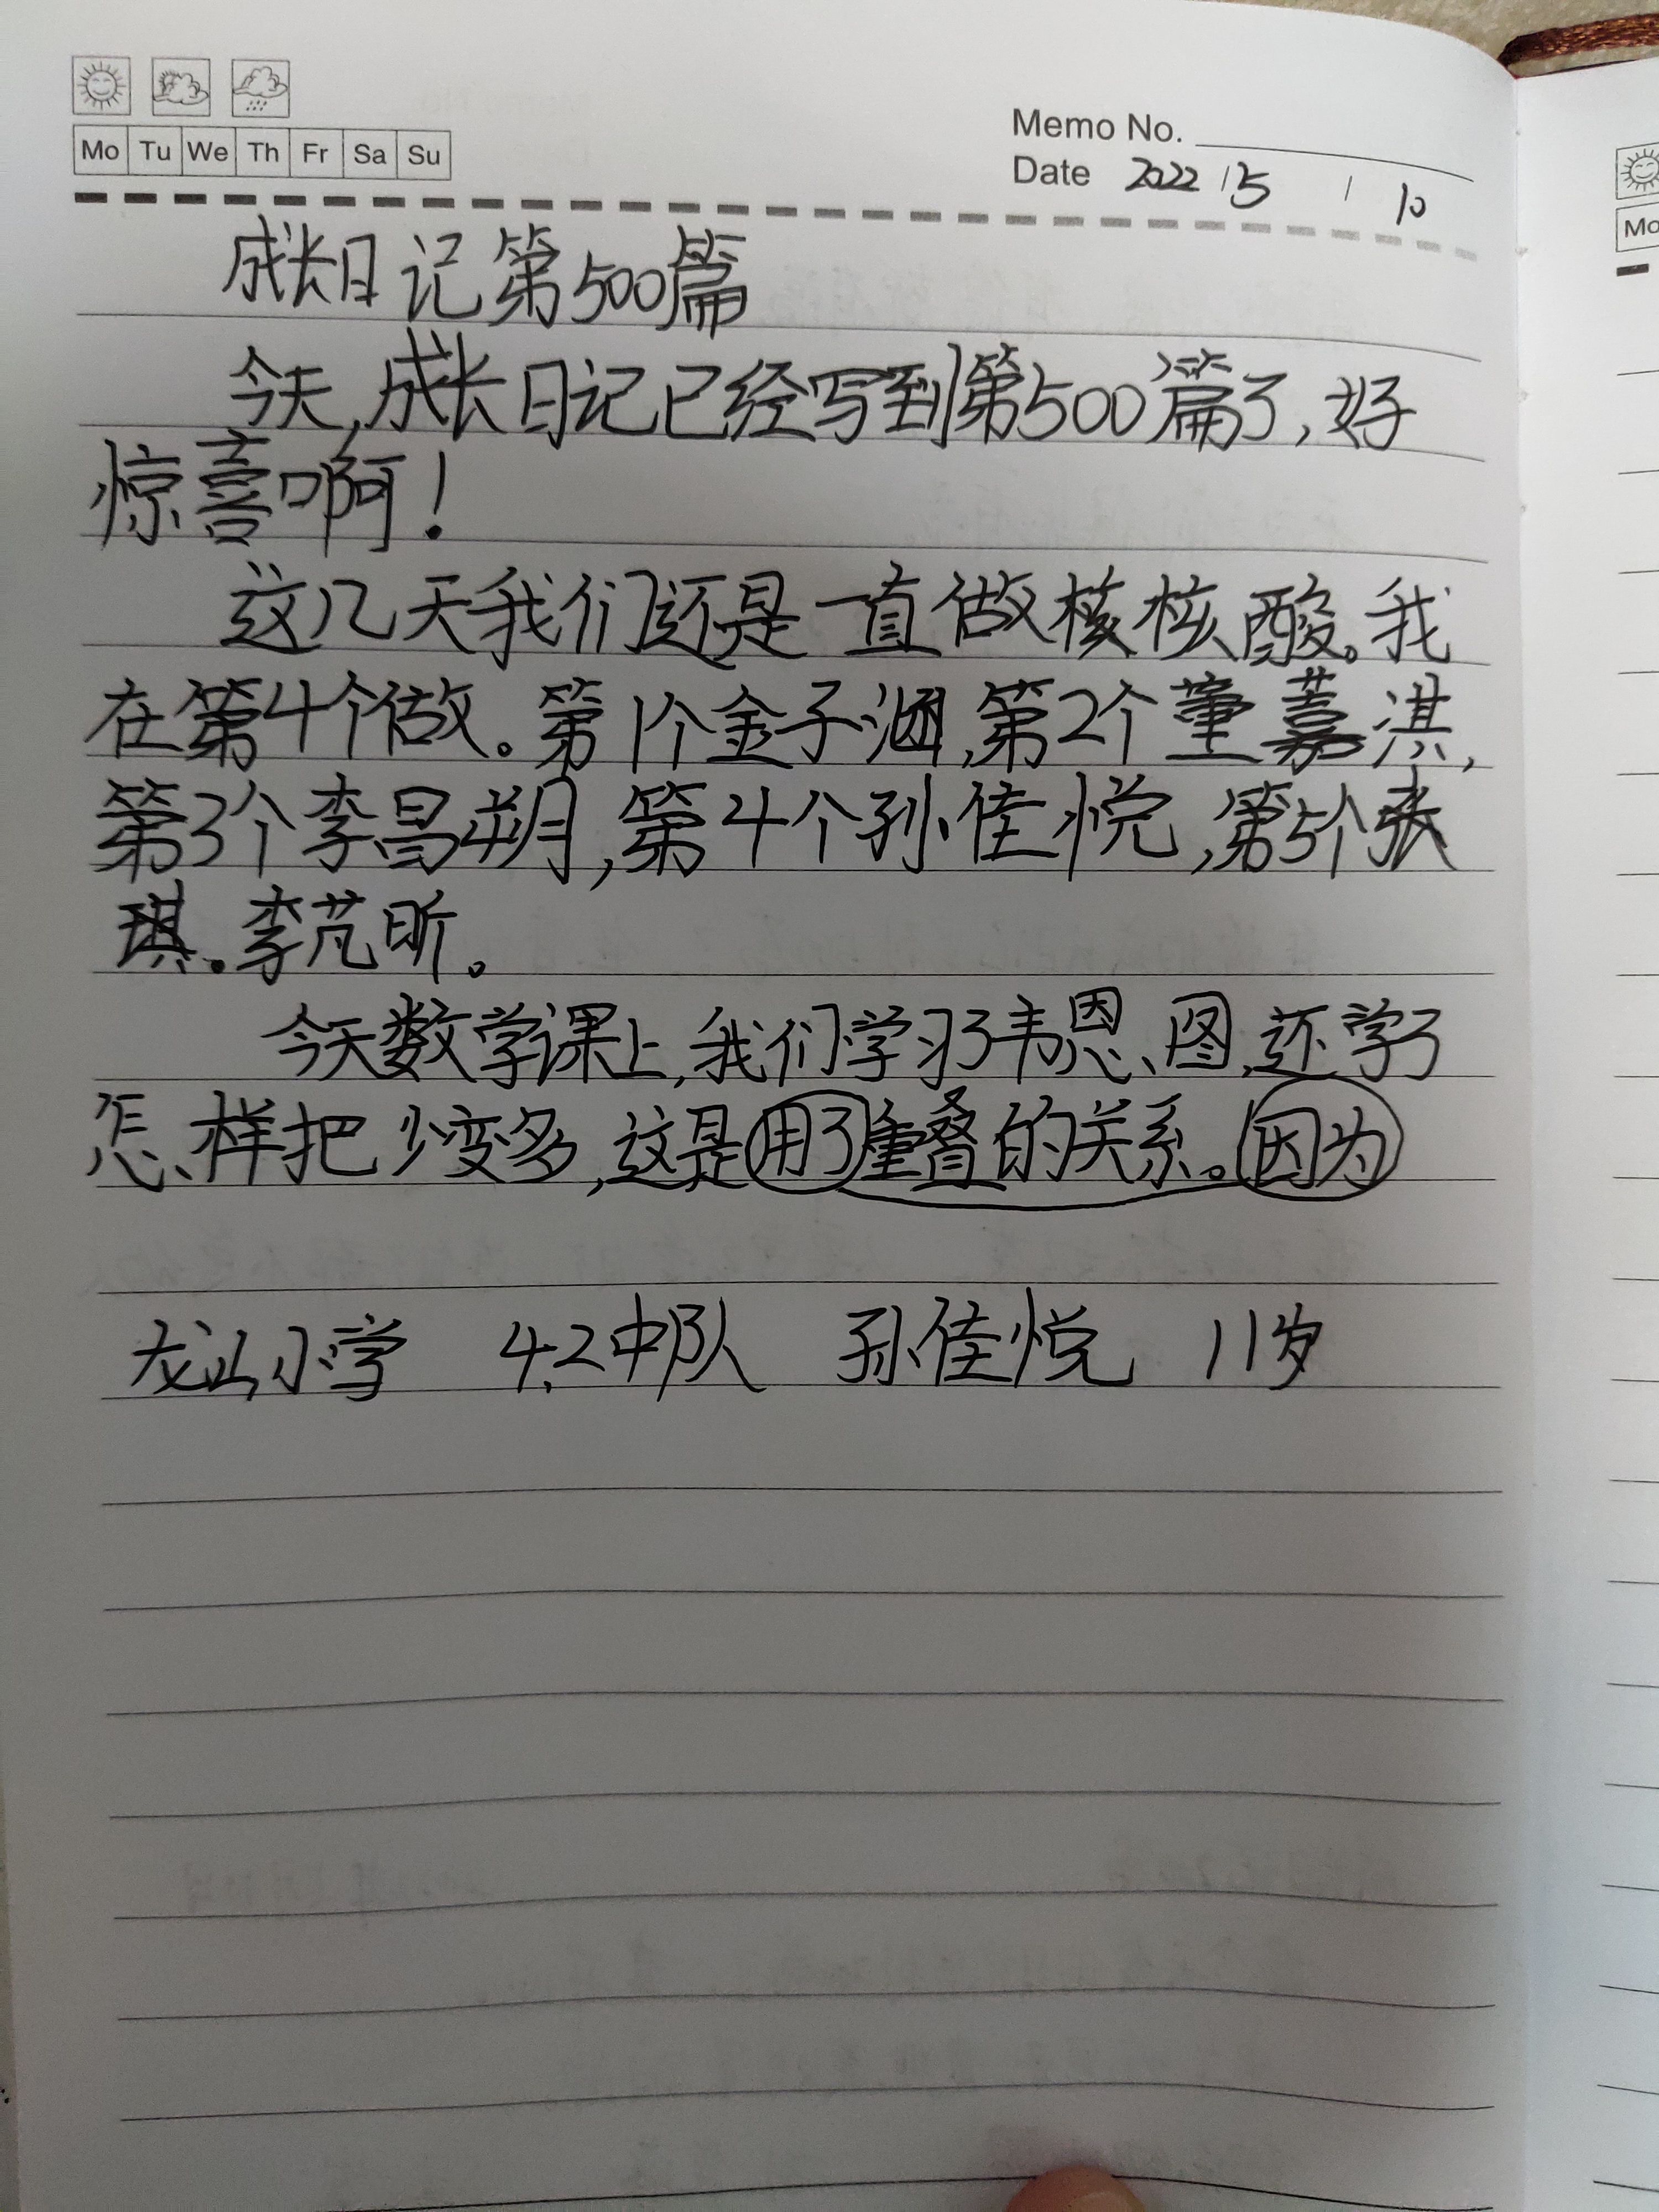 Mo Tu We Th Fr Sa Su
Memo No.
Date 2022 / 5 / 10
成长日记第500篇
今天,成长日记已经写到第500篇了,好
惊喜啊!
这几天我们还是一直做核核酸。我
在第4个做。第1个金子涵,第2个董嘉淇,
第3个李昌朔,第4个孙佳悦,第5个张
琪。李芃昕。
今天数学课上,我们学习了韦恩图,还学了
怎样把少变多,这是用了重叠的关系。因为
龙山小学 4.2中队 孙佳悦 11岁
Mo